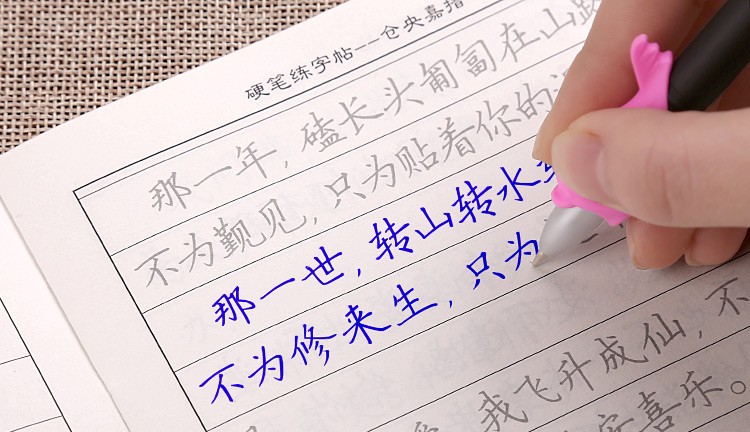 硬笔练字帖--仓央嘉措
那一年，磕长头匍匐在山路
不为觐见，只为贴着你的
那一世，转山转水
不为修来生，只为
我飞升成仙，不
喜乐。